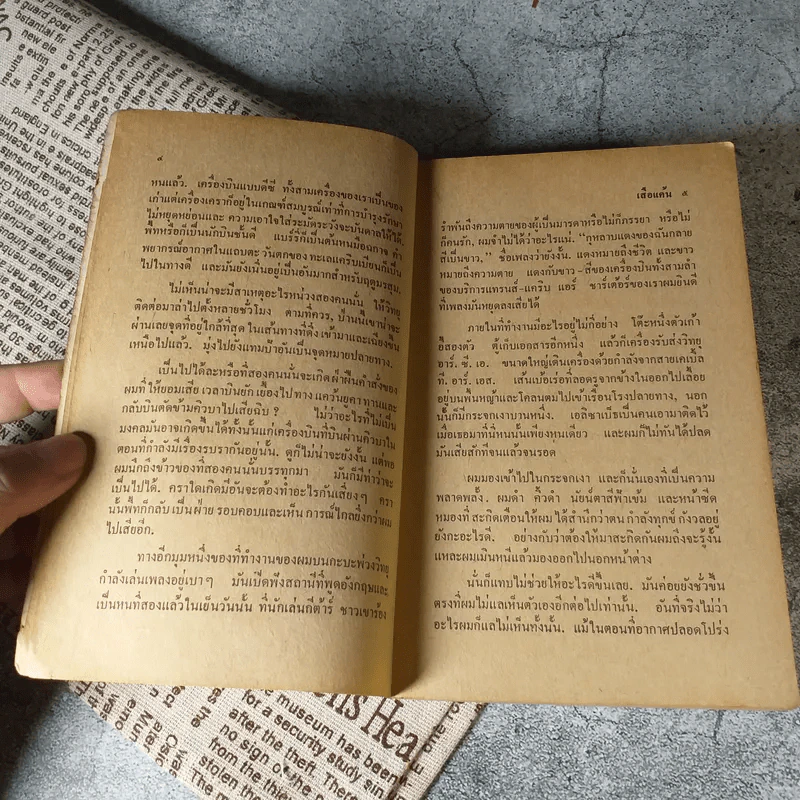 ๔
หนแล้ว. เครื่องบินแบบดีซี ทั้งสามเครื่องของเราเป็นของ
เก่าแต่เครื่องเคราก็อยู่ในเกณฑ์สมบูรณ์เท่าที่การบำรุงรักษา
ไม่หยุดหย่อนและ ความเอาใจใส่ระมัดระวังจะบันดาลให้ได้.
พีทหรือก็เป็นนักบินชั้นดี แบร์รี่ก็เป็นต้นหนมือฉกาจ คำ
พยากรณ์อากาศในแถบตะวันตกของทะเลแคริบเบียนก็เป็น
ไปในทางดี และมันยังเงียบอยู่เป็นอันมากสำหรับฤดูมรสุม.
ไม่เห็นน่าจะมีสาเหตุอะไรหน่วงสองคนนั่น ให้วิทยุ
ติดต่อมาล่าไปตั้งหลายชั่วโมง ตามที่ควร, ป่านนี้เขาน่าจะ
ผ่านเลยจุดที่อยู่ใกล้ที่สุด ในเส้นทางที่ดิ่งเข้ามาและเฉียงขึ้น
เหนือไปแล้ว. มุ่งไปยังแทมป้าอันเป็นจุดหมายปลายทาง.
เป็นไปได้ละหรือที่สองคนนั่นจะเกิดฝ่าฝืนคำสั่งของ
ผมที่ให้ยอมเสีย เวลาบินยักเยื้องไปทาง แคว้นยูคาทานและ
กลับบินตัดข้ามคิวบาไปเสียฉิบ ? ไม่ว่าอะไรที่ไม่เป็น
มงคลมันอาจเกิดขึ้นได้ทั้งนั้นแก่เครื่องบินที่บินผ่านคิวบาใน
ตอนที่กำลังมีเรื่องรบรากันอยู่นั้น. ดูก็ไม่น่าจะยังงั้น แต่พอ
ผมนึกถึงข้าวของที่สองคนนั่นบรรทุกมา มันก็มีท่าว่าจะ
เป็นไปได้. คราใดเกิดมีอันจะต้องทำอะไรกันเสี่ยงๆ ครา
นั้นพีทก็กลับเป็นฝ่าย รอบคอบและเห็น การณ์ไกลยิ่งกว่าผม
ไปเสียอีก.
ทางอีกมุมหนึ่งของที่ทำงานของผมบนกะบะพ่วงวิทยุ
กำลังเล่นเพลงอยู่เบาๆ มันเปิดฟังสถานีที่พูดอังกฤษและ
เป็นหนที่สองแล้วในเย็นวันนั้น ที่นักเล่นกีต้าร์ ชาวเขาร้อง
เสือแค้น ๕
รำพันถึงความตายของผู้เป็นมารดาหรือไม่ก็ภรรยา หรือไม่
ก็คนรัก, ผมจำไม่ได้ว่าอะไรแน่. "กุหลาบแดงของฉันกลาย
สีเป็นขาว," ชื่อเพลงว่ายังงั้น. แดงหมายถึงชีวิต และขาว
หมายถึงความตาย แดงกับขาว-สีของเครื่องบินทั้งสามลำ
ของบริการแทรนส์-แคริบ แอร์ ชาร์เตอร์ของเราผมยินดี
ที่เพลงมันหยุดลงเสียได้
ภายในที่ทำงานมีอะไรอยู่ไม่กี่อย่าง โต๊ะหนึ่งตัวเก้า
อี้สองตัว ตู้เก็บเอกสารอีกหนึ่ง แล้วก็เครื่องรับส่งวิทยุ
อาร์. ซี. เอ. ขนาดใหญ่เดินเครื่องด้วยกำลังจากสายเคเบิ้ล
ที. อาร์. เอส. เส้นเบ้อเร่อที่ลอดรูจากข้างในออกไปเลื้อย
อยู่บนพื้นหญ้าและโคลนตมไปเข้าเรือนโรงปลายทาง, นอก
นั้นก็มีกระจกเงาบานหนึ่ง. เอลิซาเบ็ธเป็นคนเอามาติดไว้
เมื่อเธอมาที่นี่หนนั้นเพียงหนเดียว และผมก็ไม่ทันได้ปลด
มันเสียสักทีจนแล้วจนรอด
ผมมองเข้าไปในกระจกเงา และก็นั่นเองที่เป็นความ
พลาดพลั้ง. ผมดำ คิ้วดำ นัยน์ตาสีฟ้าเข้ม และหน้าซีด
หมองที่ สะกิดเตือนให้ผม ได้สำนึกว่าตน กำลังทุกข์ กังวลอยู่
ยังกะอะไรดี. อย่างกับว่าต้องให้มาสะกิดกันผมถึงจะรู้งั้น
แหละผมเมินหนีแล้วมองออกไปนอกหน้าต่าง
นั่นก็แทบไม่ช่วยให้อะไรดีขึ้นเลย. มันค่อยยังชั่วขึ้น
ตรงที่ผมไม่แลเห็นตัวเองอีกต่อไปเท่านั้น. อันที่จริงไม่ว่า
อะไรผมก็แลไม่เห็นทั้งนั้น. แม้ในตอนที่อากาศปลอดโปร่ง
museum has been
for a security study sin
after the theft. They
no sign of the
from the thin
stolen the